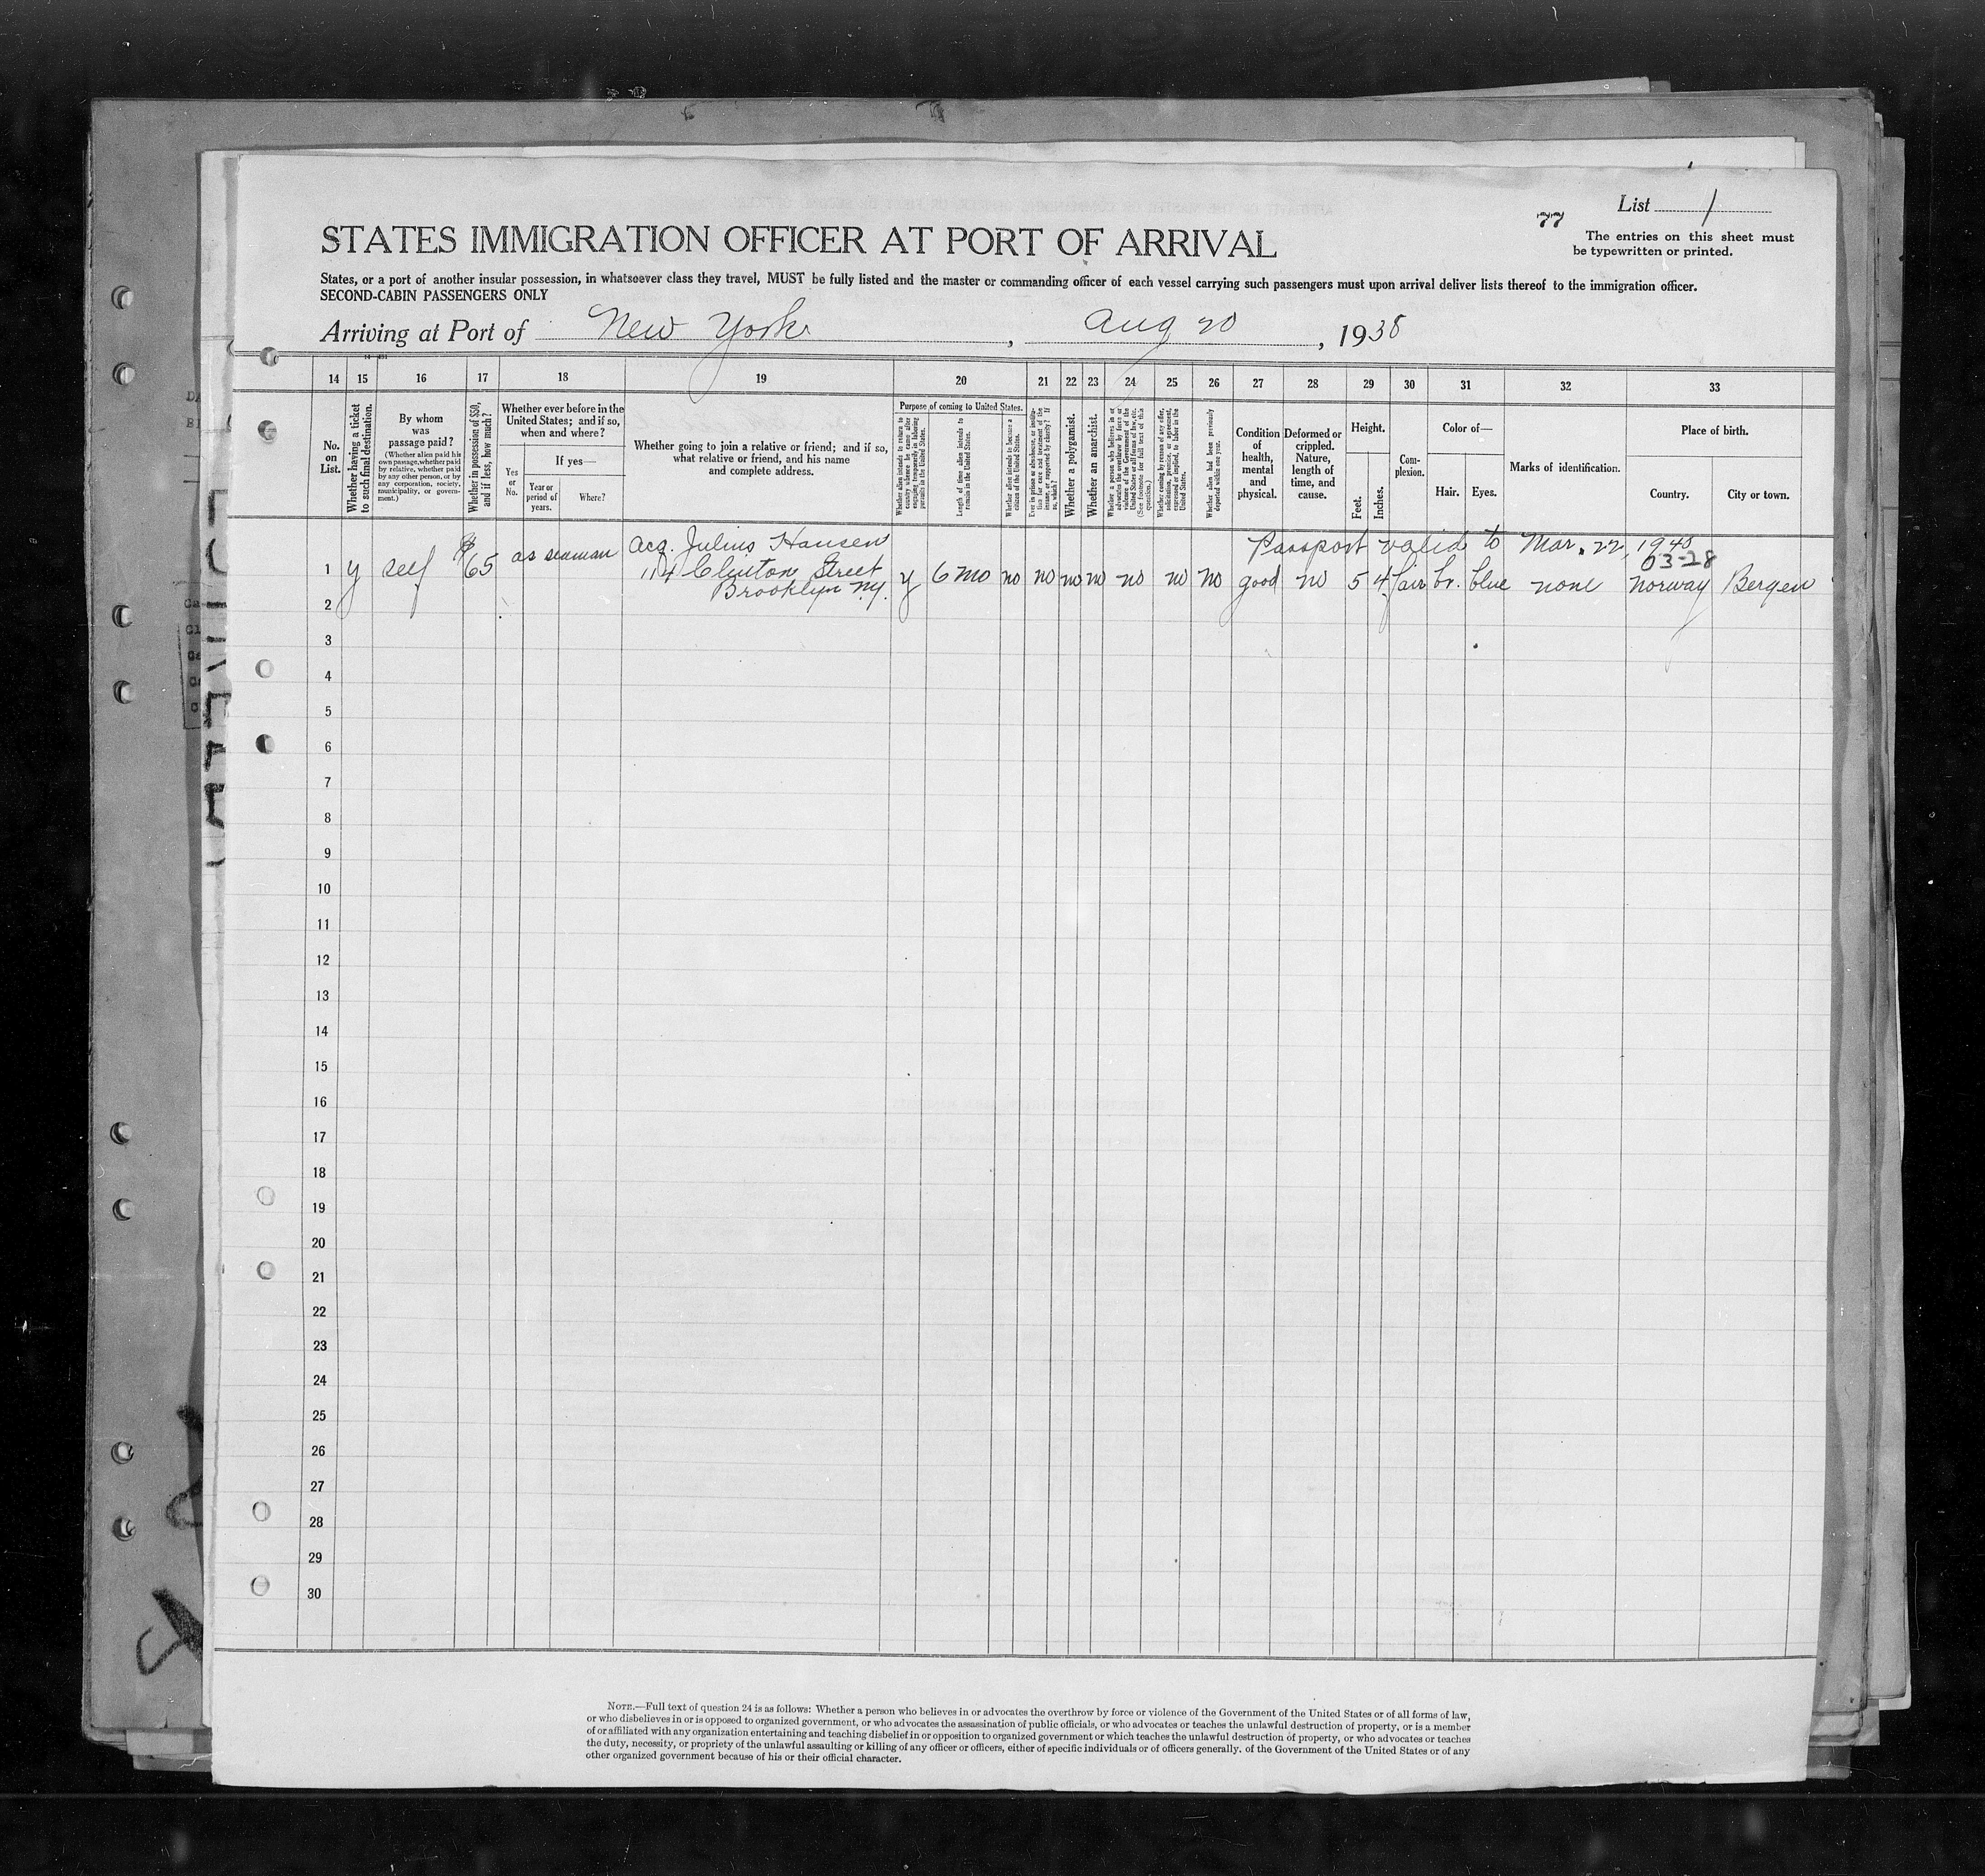 List 1
77
The entries on this sheet must
be typewritten or printed.
STATES IMMIGRATION OFFICER AT PORT OF ARRIVAL
States, or a port of another insular possession, in whatsoever class they travel, MUST be fully listed and the master or commanding officer of each vessel carrying such passengers must upon arrival deliver lists thereof to the immigration officer.
SECOND-CABIN PASSENGERS ONLY
Arriving at Port of New York, Aug 20, 1938
14 15 16 17 18 19 20 21 22 23 24 25 26 27 28 29 30 31 32 33
No. on List.
Whether having a ticket to such final destination.
By whom was passage paid?
(Whether alien paid his own passage, whether paid by relative, whether paid by any other person, or by any corporation, society, municipality, or government.)
Whether in possession of $50, and if less, how much?
Whether ever before in the United States; and if so, when and where?
Yes or No.
If yes—
Year or period of years.
Where?
Whether going to join a relative or friend; and if so, what relative or friend, and his name and complete address.
Purpose of coming to United States.
Whether alien intends to return to country whence he came after engaging temporarily in laboring pursuits in the United States.
Length of time alien intends to remain in the United States.
Whether alien intends to become a citizen of the United States.
Ever in prison or almshouse, or institution for care and treatment of the insane, or supported by charity? If so, which?
Whether a polygamist.
Whether an anarchist.
Whether a person who believes in or advocates the overthrow by force or violence of the Government of the United States or all forms of law, etc. (See footnote for full text of this question.)
Whether coming by reason of any offer, solicitation, promise, or agreement, expressed or implied, to labor in the United States.
Whether alien had been previously deported within one year.
Condition of health, mental and physical.
Deformed or crippled. Nature, length of time, and cause.
Height.
Feet.
Inches.
Complexion.
Color of—
Hair.
Eyes.
Marks of identification.
Place of birth.
Country.
City or town.
Passport valid to Mar. 22, 1940
03-28
1 y self $65 as seaman acq. Julius Hansen
114 Clinton Street
Brooklyn N.Y.
y 6 mo no no no no no no no good no 5 4 fair br. blue none Norway Bergen
2
3
4
5
6
7
8
9
10
11
12
13
14
15
16
17
18
19
20
21
22
23
24
25
26
27
28
29
30
NOTE.—Full text of question 24 is as follows: Whether a person who believes in or advocates the overthrow by force or violence of the Government of the United States or of all forms of law,
or who disbelieves in or is opposed to organized government, or who advocates the assassination of public officials, or who advocates or teaches the unlawful destruction of property, or is a member
of or affiliated with any organization entertaining and teaching disbelief in or opposition to organized government or which teaches the unlawful destruction of property, or who advocates or teaches
the duty, necessity, or propriety of the unlawful assaulting or killing of any officer or officers, either of specific individuals or of officers generally, of the Government of the United States or of any
other organized government because of his or their official character.